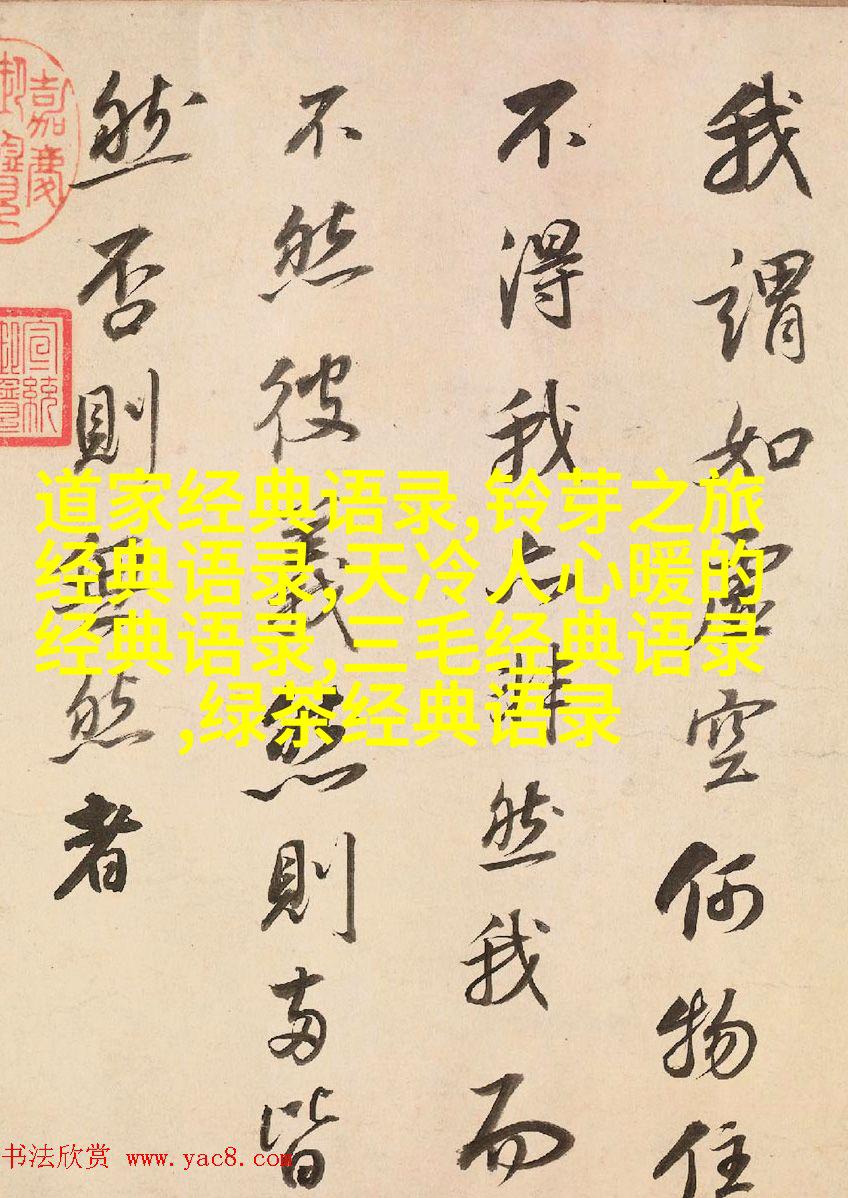 我謂如虛空何物住
不得我亦非然我而
不然彼義然則兩皆
然否則無然者
嘉慶
宣統
道家经典语录,铃芽之旅
经典语录,天冷人心暖的
经典语录,三毛经典语录
,绿茶经典语录
书法欣赏 www.yac8.com